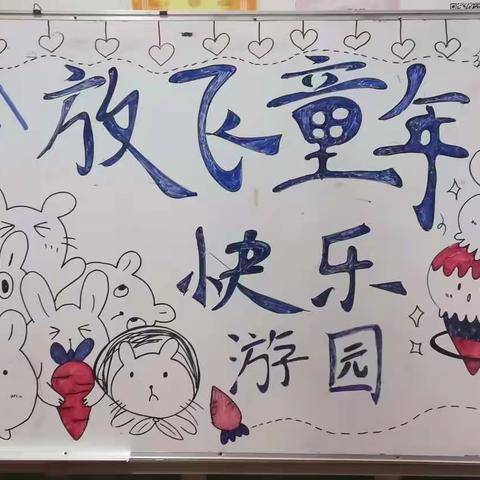 放飞童年
快乐
游园